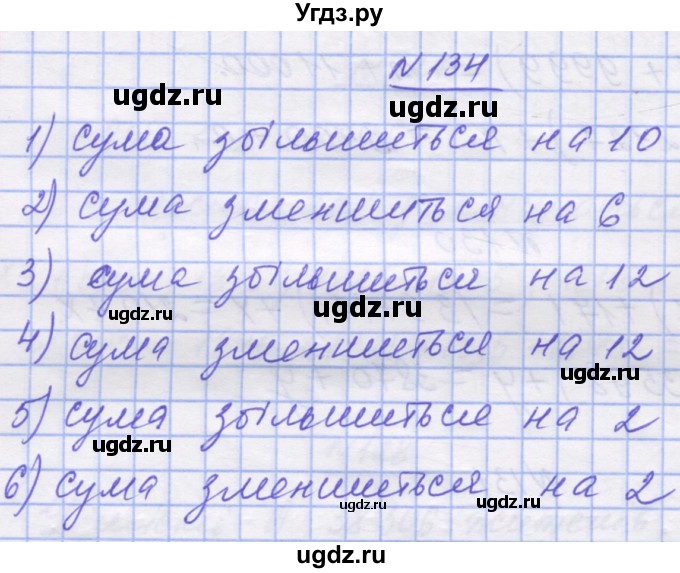 Угдз.ру
N 134
ugdz.ru ugdz.ru
1) сума збільшиться на 10
2) сума зменшиться на 6
ugdz.ru
3) сума збільшиться на 12
ugdz.ru ugdz.ru
4) сума зменшиться на 12
ugdz.ru
5) сума збільшиться на 2
ugdz.ru
6) сума зменшиться на 2
ugdz.ru ugdz.ru
ugdz.ru